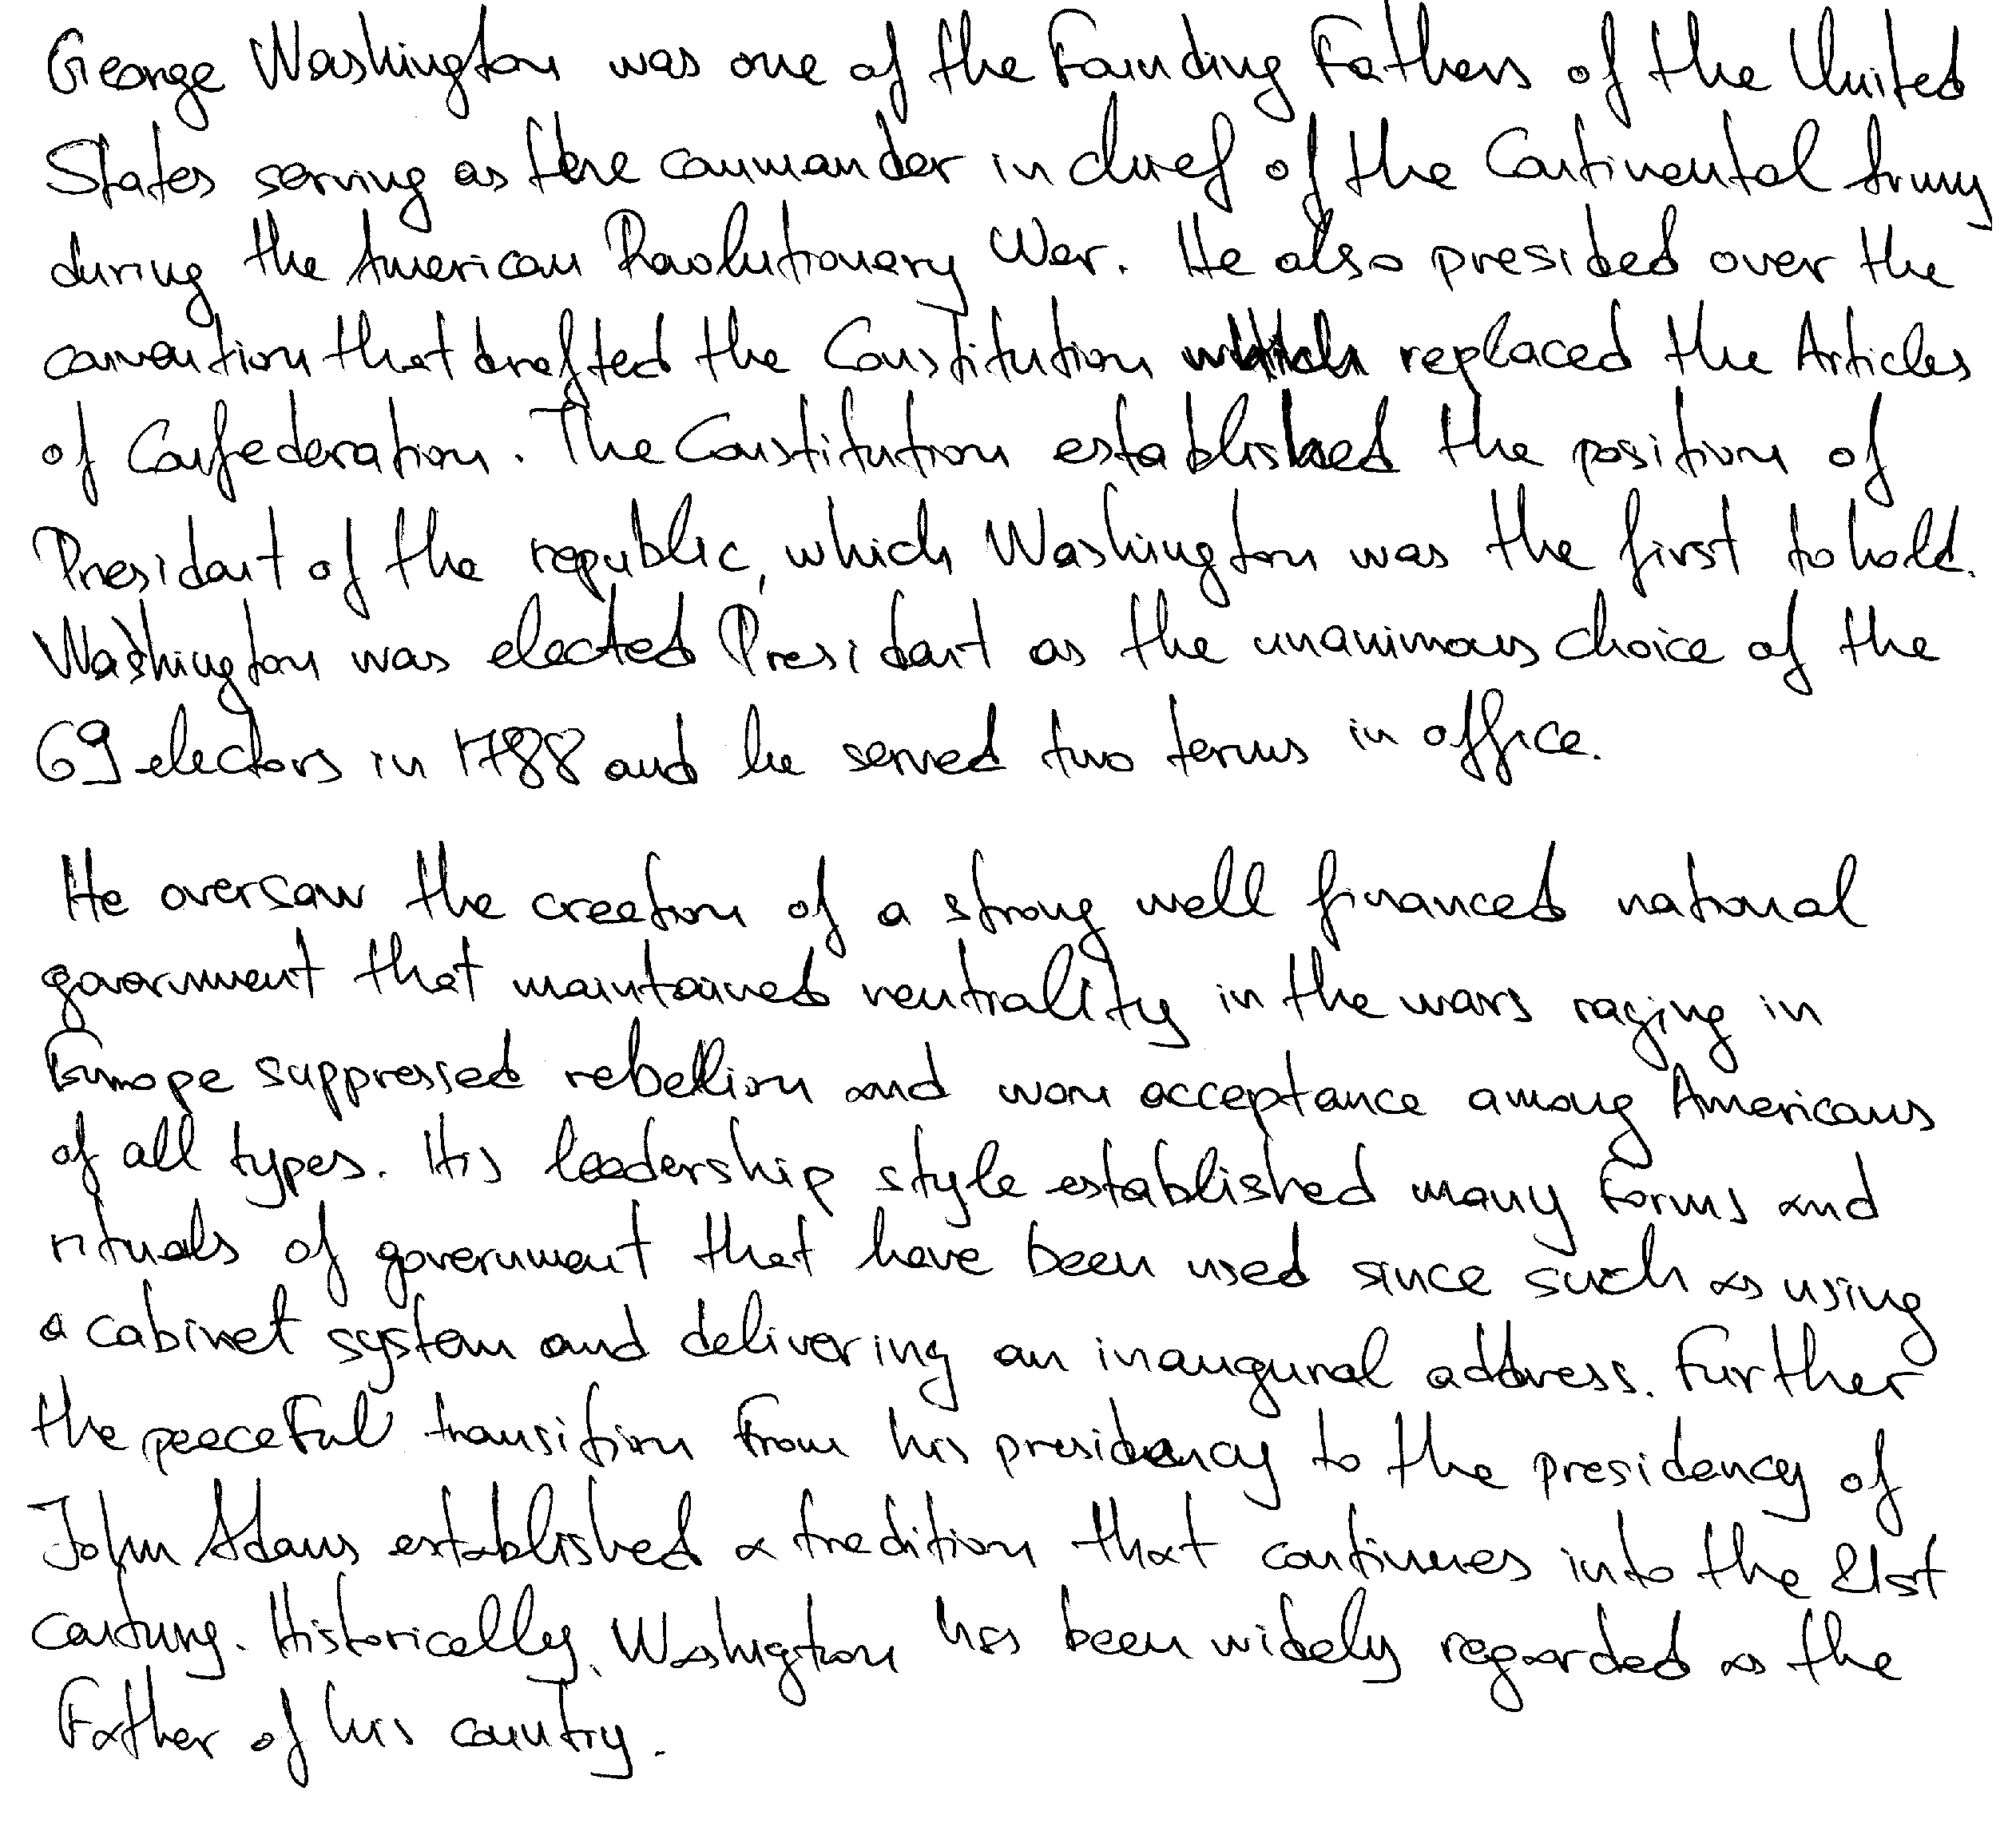 George Washington was one of the Founding Fathers of the United
States serving as the commander in chief of the Continental Army
during the American Revolutionary War. He also presided over the
convention that drafted the Constitution which replaced the Articles
of Confederation. The Constitution established the position of
President of the republic, which Washington was the first to hold.
Washington was elected President as the unanimous choice of the
69 electors in 1788 and he served two terms in office.
He oversaw the creation of a strong well financed national
government that maintained neutrality in the wars raging in
Europe suppressed rebellion and won acceptance among Americans
of all types. His leadership style established many forms and
rituals of government that have been used since such as using
a cabinet system and delivering an inaugural address. Further
the peaceful transition from his presidency to the presidency of
John Adams established a tradition that continues into the 21st
century. Historically, Washigton has been widely regarded as the
Father of his country.